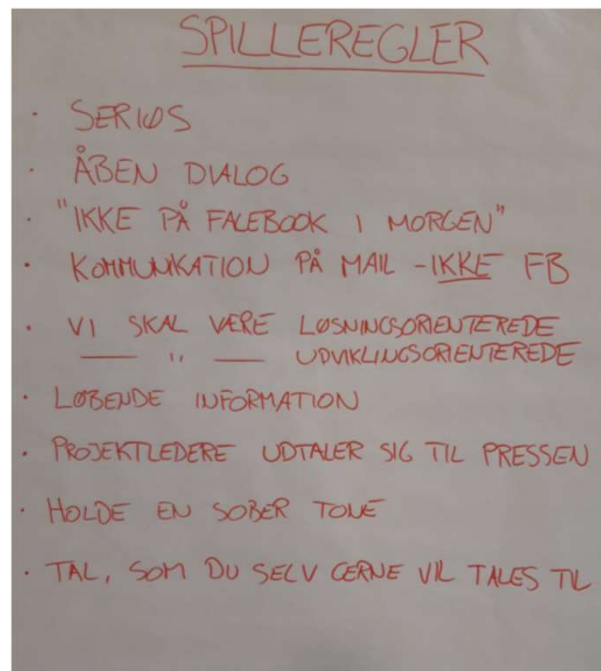 SPILLEREGLER
· SERIØS
· ÅBEN DIALOG
· "IKKE PÅ FACEBOOK I MORGEN"
· KOMMUNIKATION PÅ MAIL - IKKE FB
· VI SKAL VÆRE LØSNINGSORIENTEREDE
— " — UDVIKLINGSORIENTEREDE
· LØBENDE INFORMATION
· PROJEKTLEDERE UDTALER SIG TIL PRESSEN
· HOLDE EN SOBER TONE
· TAL, SOM DU SELV GERNE VIL TALES TIL